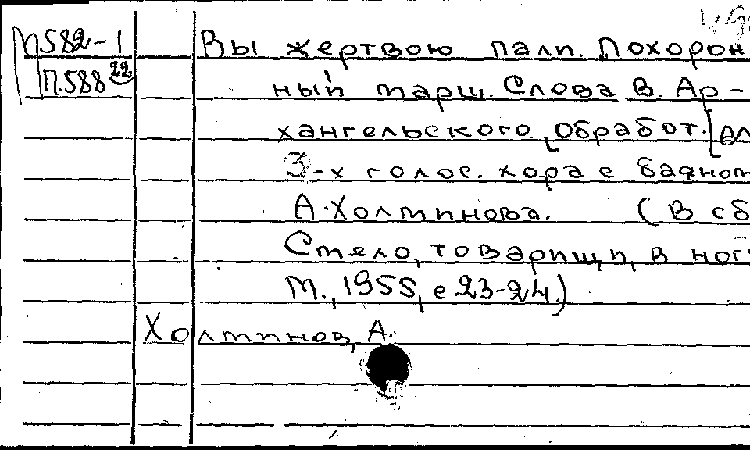 П582-1 Вы жертвою пали. Похорон
П.588 22 ный марш. Слова В. Ар-
хангельского, обработ. [дл
3-х голос. хора с баяном
А. Холминова. (В сб
Смело, товарищи, в ногу
М., 1955, с 23-24.)
Холминов, А.